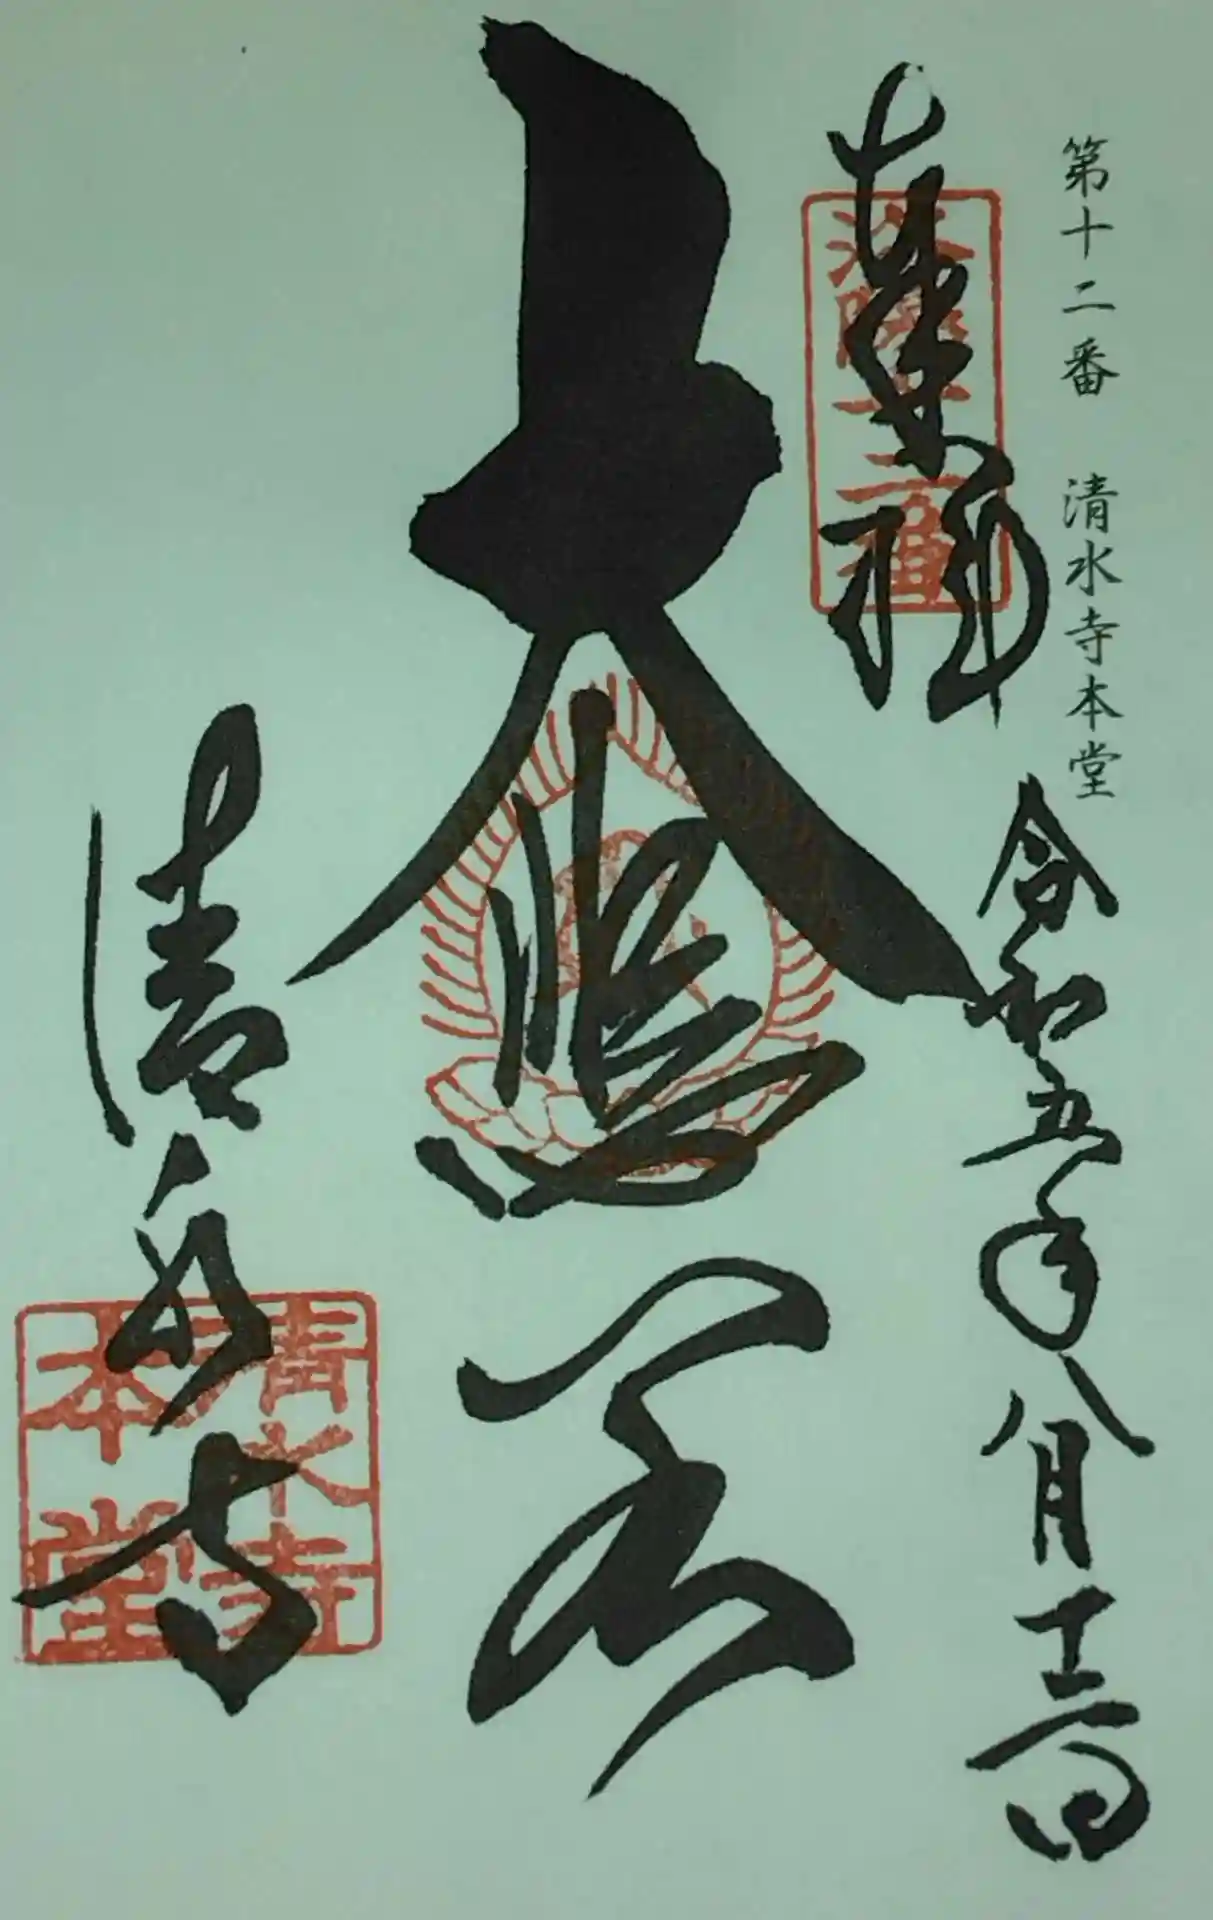 第十二番 清水寺本堂
奉拝
洛陽十二番
令和五年八月
大悲閣
清水寺
清水寺
本堂